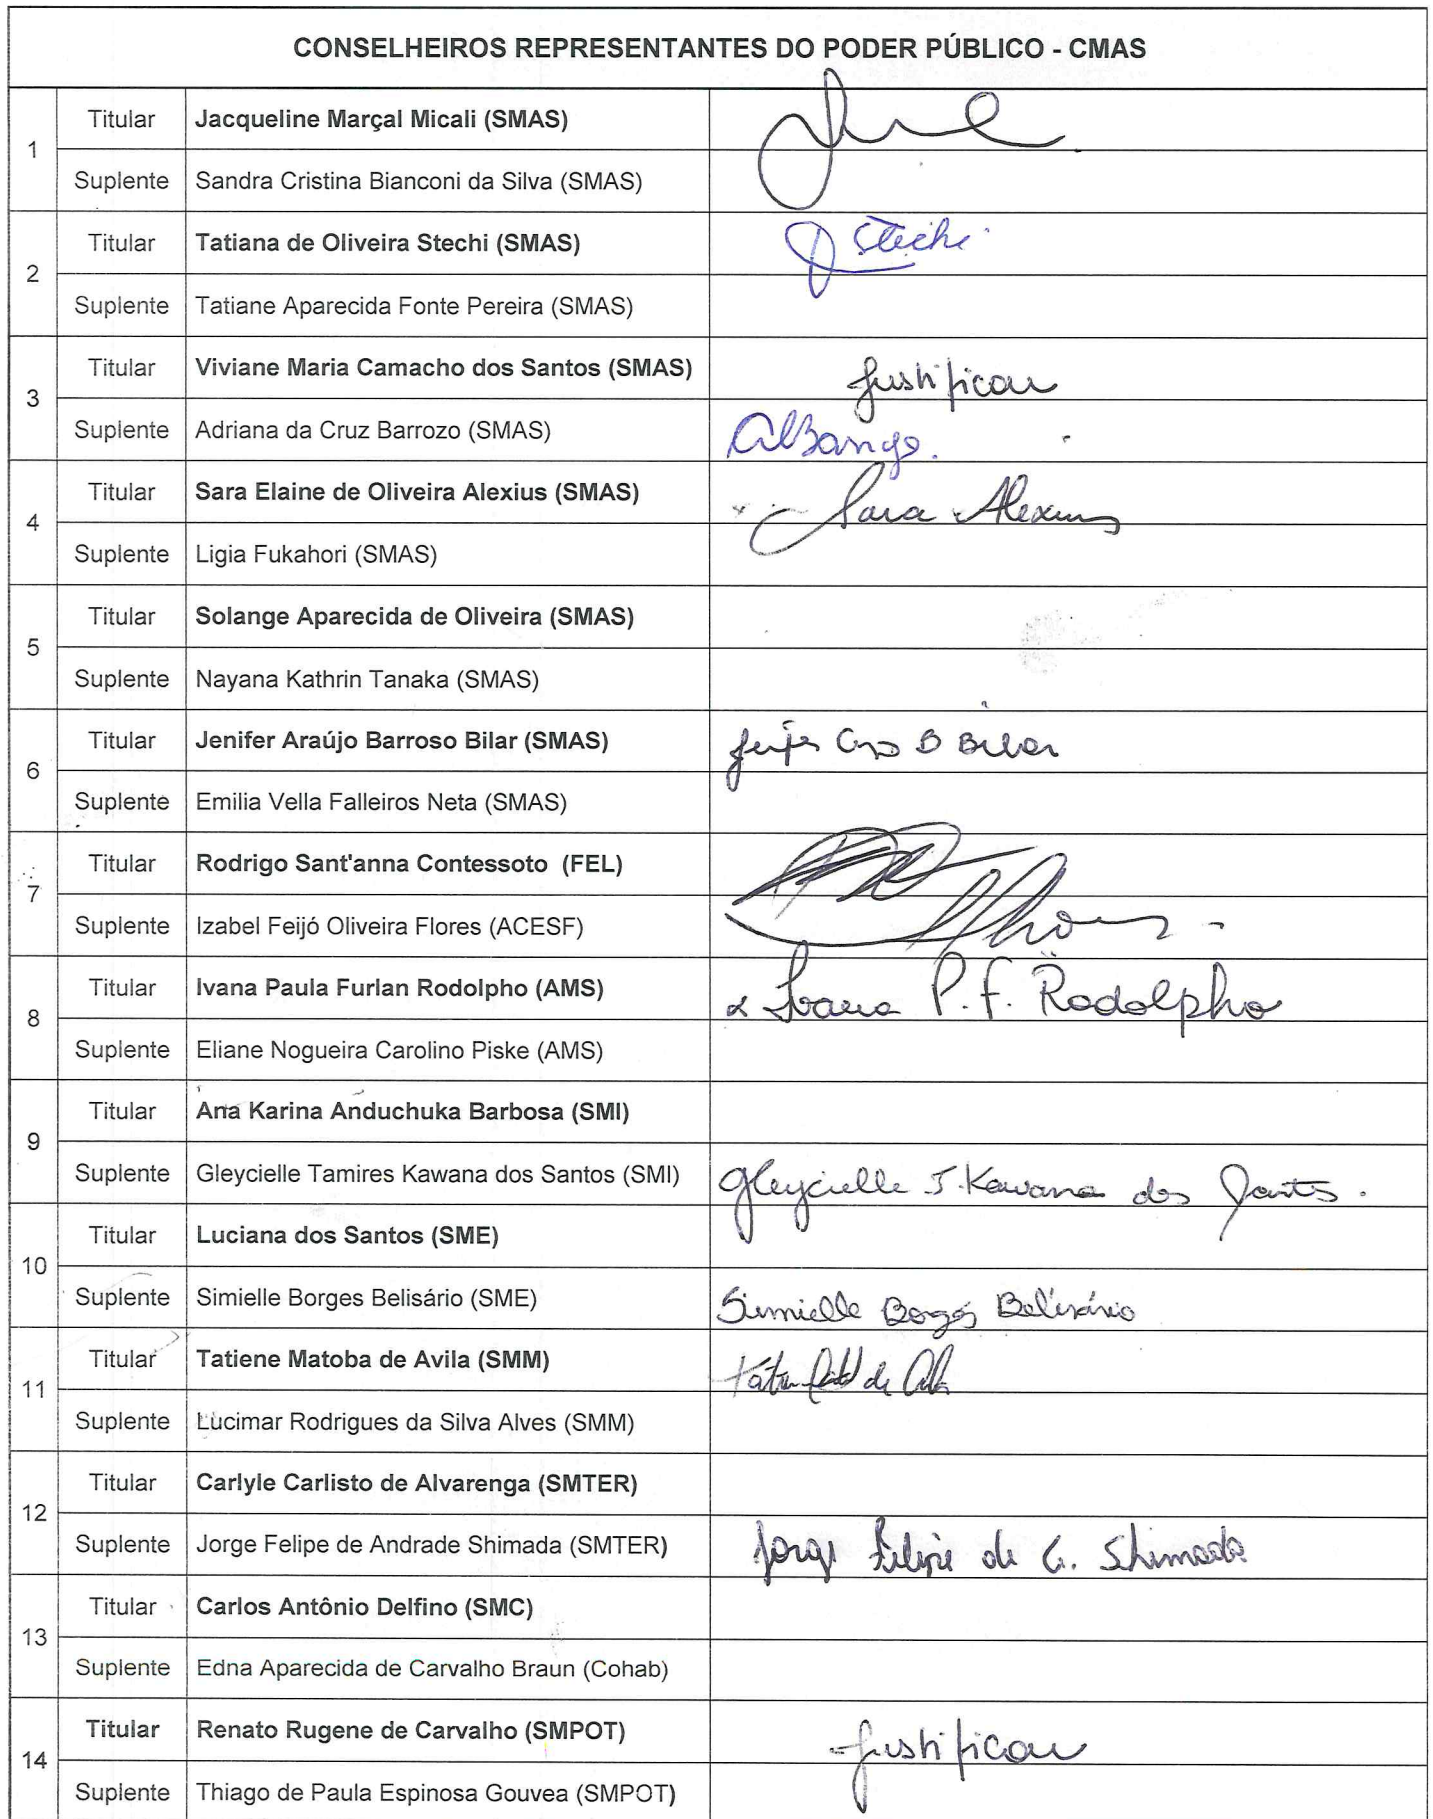 CONSELHEIROS REPRESENTANTES DO PODER PÚBLICO - CMAS
1
Titular Jacqueline Marçal Micali (SMAS)
Suplente Sandra Cristina Bianconi da Silva (SMAS)
2
Titular Tatiana de Oliveira Stechi (SMAS) Stechi
Suplente Tatiane Aparecida Fonte Pereira (SMAS)
3
Titular Viviane Maria Camacho dos Santos (SMAS) Justificou
Suplente Adriana da Cruz Barrozo (SMAS)
4
Titular Sara Elaine de Oliveira Alexius (SMAS) Sara Alexius
Suplente Ligia Fukahori (SMAS)
5
Titular Solange Aparecida de Oliveira (SMAS)
Suplente Nayana Kathrin Tanaka (SMAS)
6
Titular Jenifer Araújo Barroso Bilar (SMAS) B Bilar
Suplente Emilia Vella Falleiros Neta (SMAS)
7
Titular Rodrigo Sant'anna Contessoto (FEL)
Suplente Izabel Feijó Oliveira Flores (ACESF)
8
Titular Ivana Paula Furlan Rodolpho (AMS) Ivana P. F. Rodolpho
Suplente Eliane Nogueira Carolino Piske (AMS)
9
Titular Ana Karina Anduchuka Barbosa (SMI)
Suplente Gleycielle Tamires Kawana dos Santos (SMI) Gleycielle T. Kawana dos Santos.
10
Titular Luciana dos Santos (SME)
Suplente Simielle Borges Belisário (SME) Simielle Borges Belisário
11
Titular Tatiene Matoba de Avila (SMM)
Suplente Lucimar Rodrigues da Silva Alves (SMM)
12
Titular Carlyle Carlisto de Alvarenga (SMTER)
Suplente Jorge Felipe de Andrade Shimada (SMTER) Jorge Felipe de A. Shimada
13
Titular Carlos Antônio Delfino (SMC)
Suplente Edna Aparecida de Carvalho Braun (Cohab)
14
Titular Renato Rugene de Carvalho (SMPOT) Justificou
Suplente Thiago de Paula Espinosa Gouvea (SMPOT)